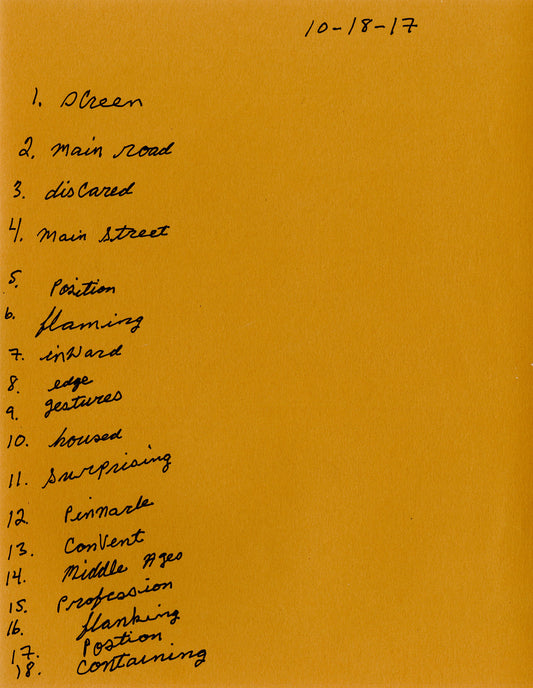 10-18-17
1. screen
2. Main road
3. discared
4. Main Street
5. Position
6. flaming
7. inward
8. edge
9. gestures
10. housed
11. Surprising
12. Pinnacle
13. Convent
14. Middle Ages
15. Profession
16. flanking
17. Postion
18. Containing